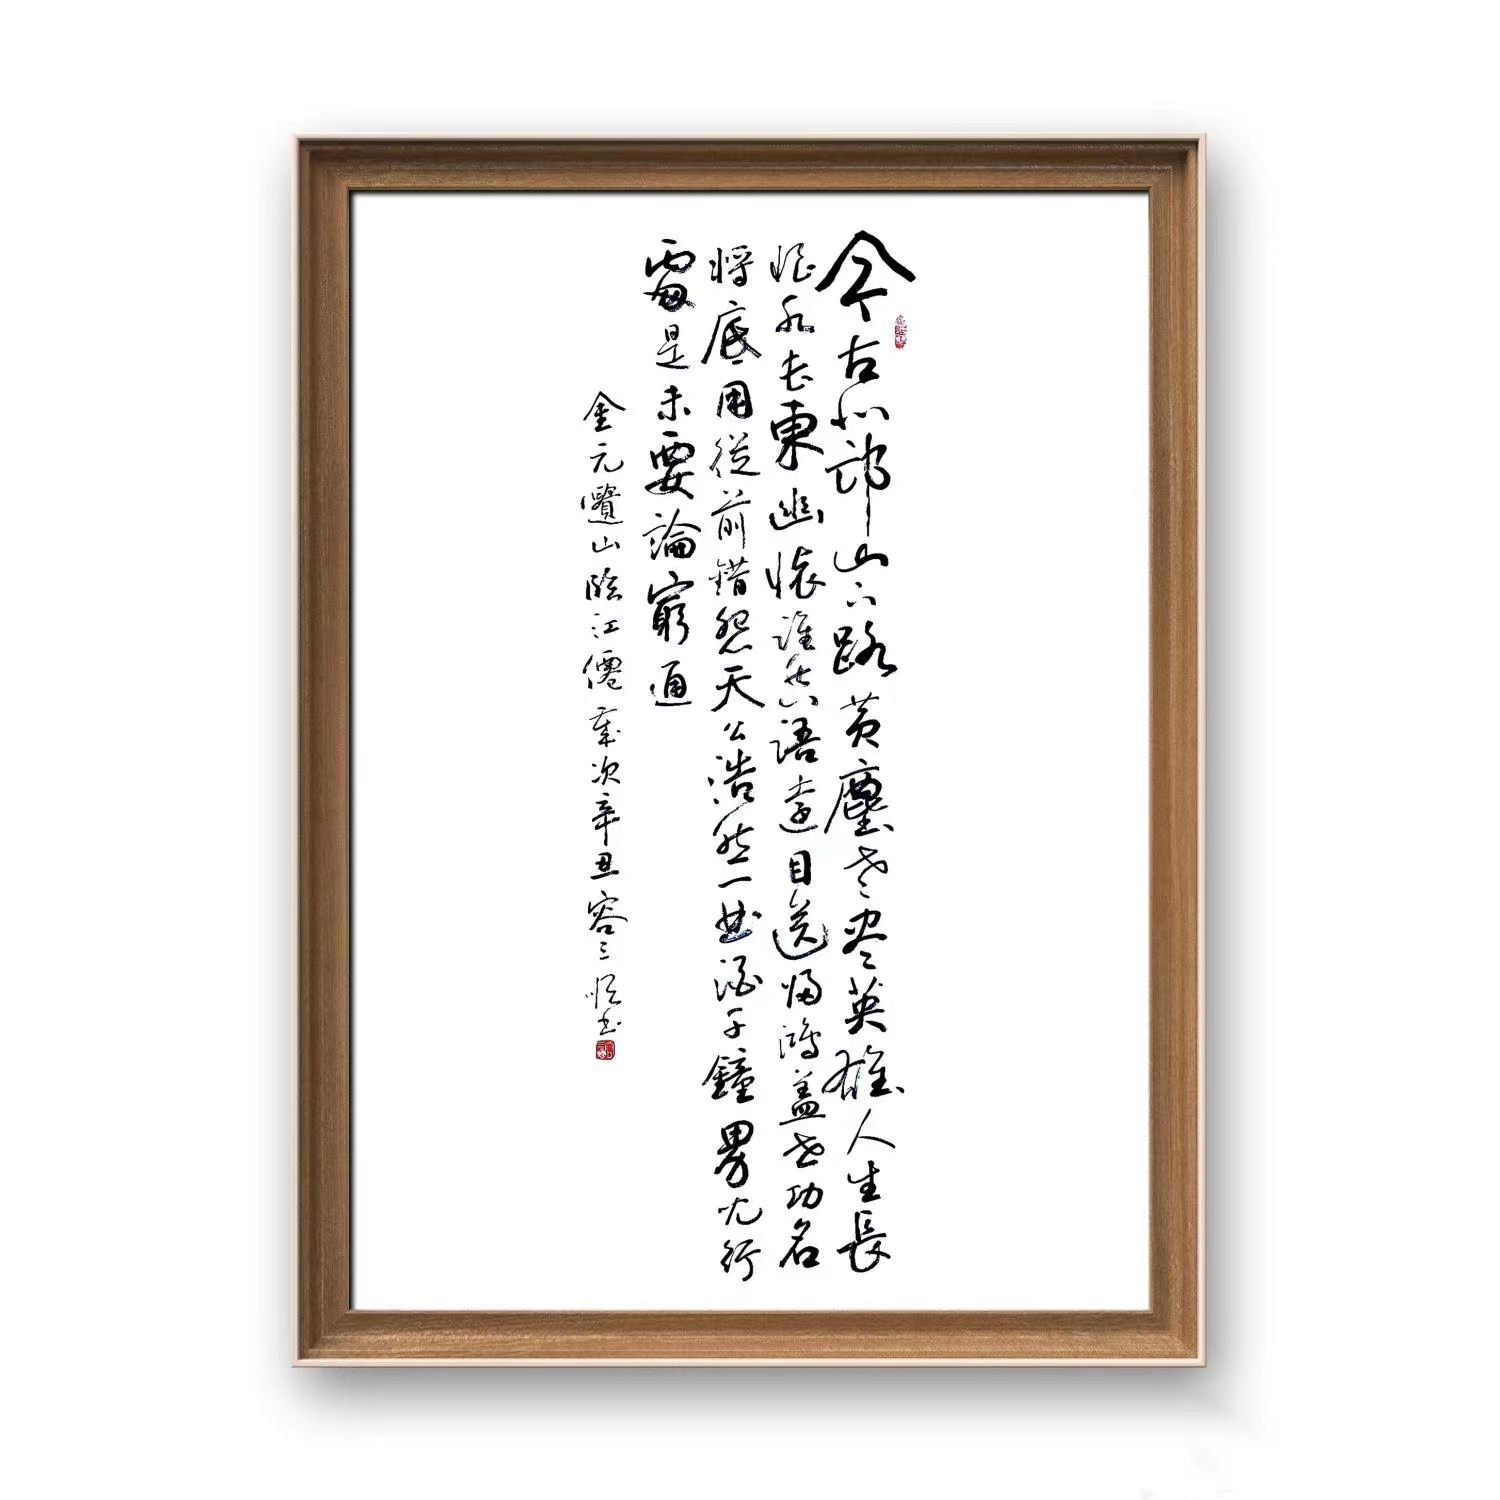 今古北邙山下路黄塵老尽英雄人生長
恨水長東幽懷誰共語遠目送归鴻盖世功名
将底用從前錯怨天公浩然一曲酒千鐘男兒行
處是未要論窮通
金元遺山臨江僊歲次辛丑容三書